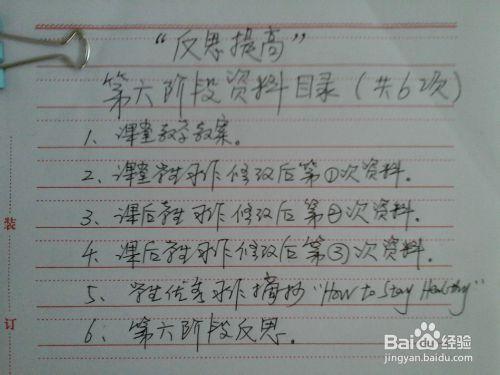 “反思提高”
第六阶段资料目录(共6次)
1、课堂教学教案。
2、课堂学生习作修改后第①次资料.
3、课后学生习作修改后第②次资料.
4、课后学生习作修改后第③次资料.
5、学生优秀习作摘抄“How to Stay Healthy”
6、第六阶段反思.
装
订
Baidu经验
jingyan.baidu.com